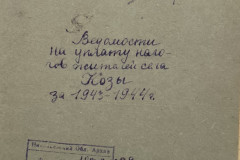 Ведомости
на уплату нало-
гов жителей села
Козы
за 1943-1944 г.